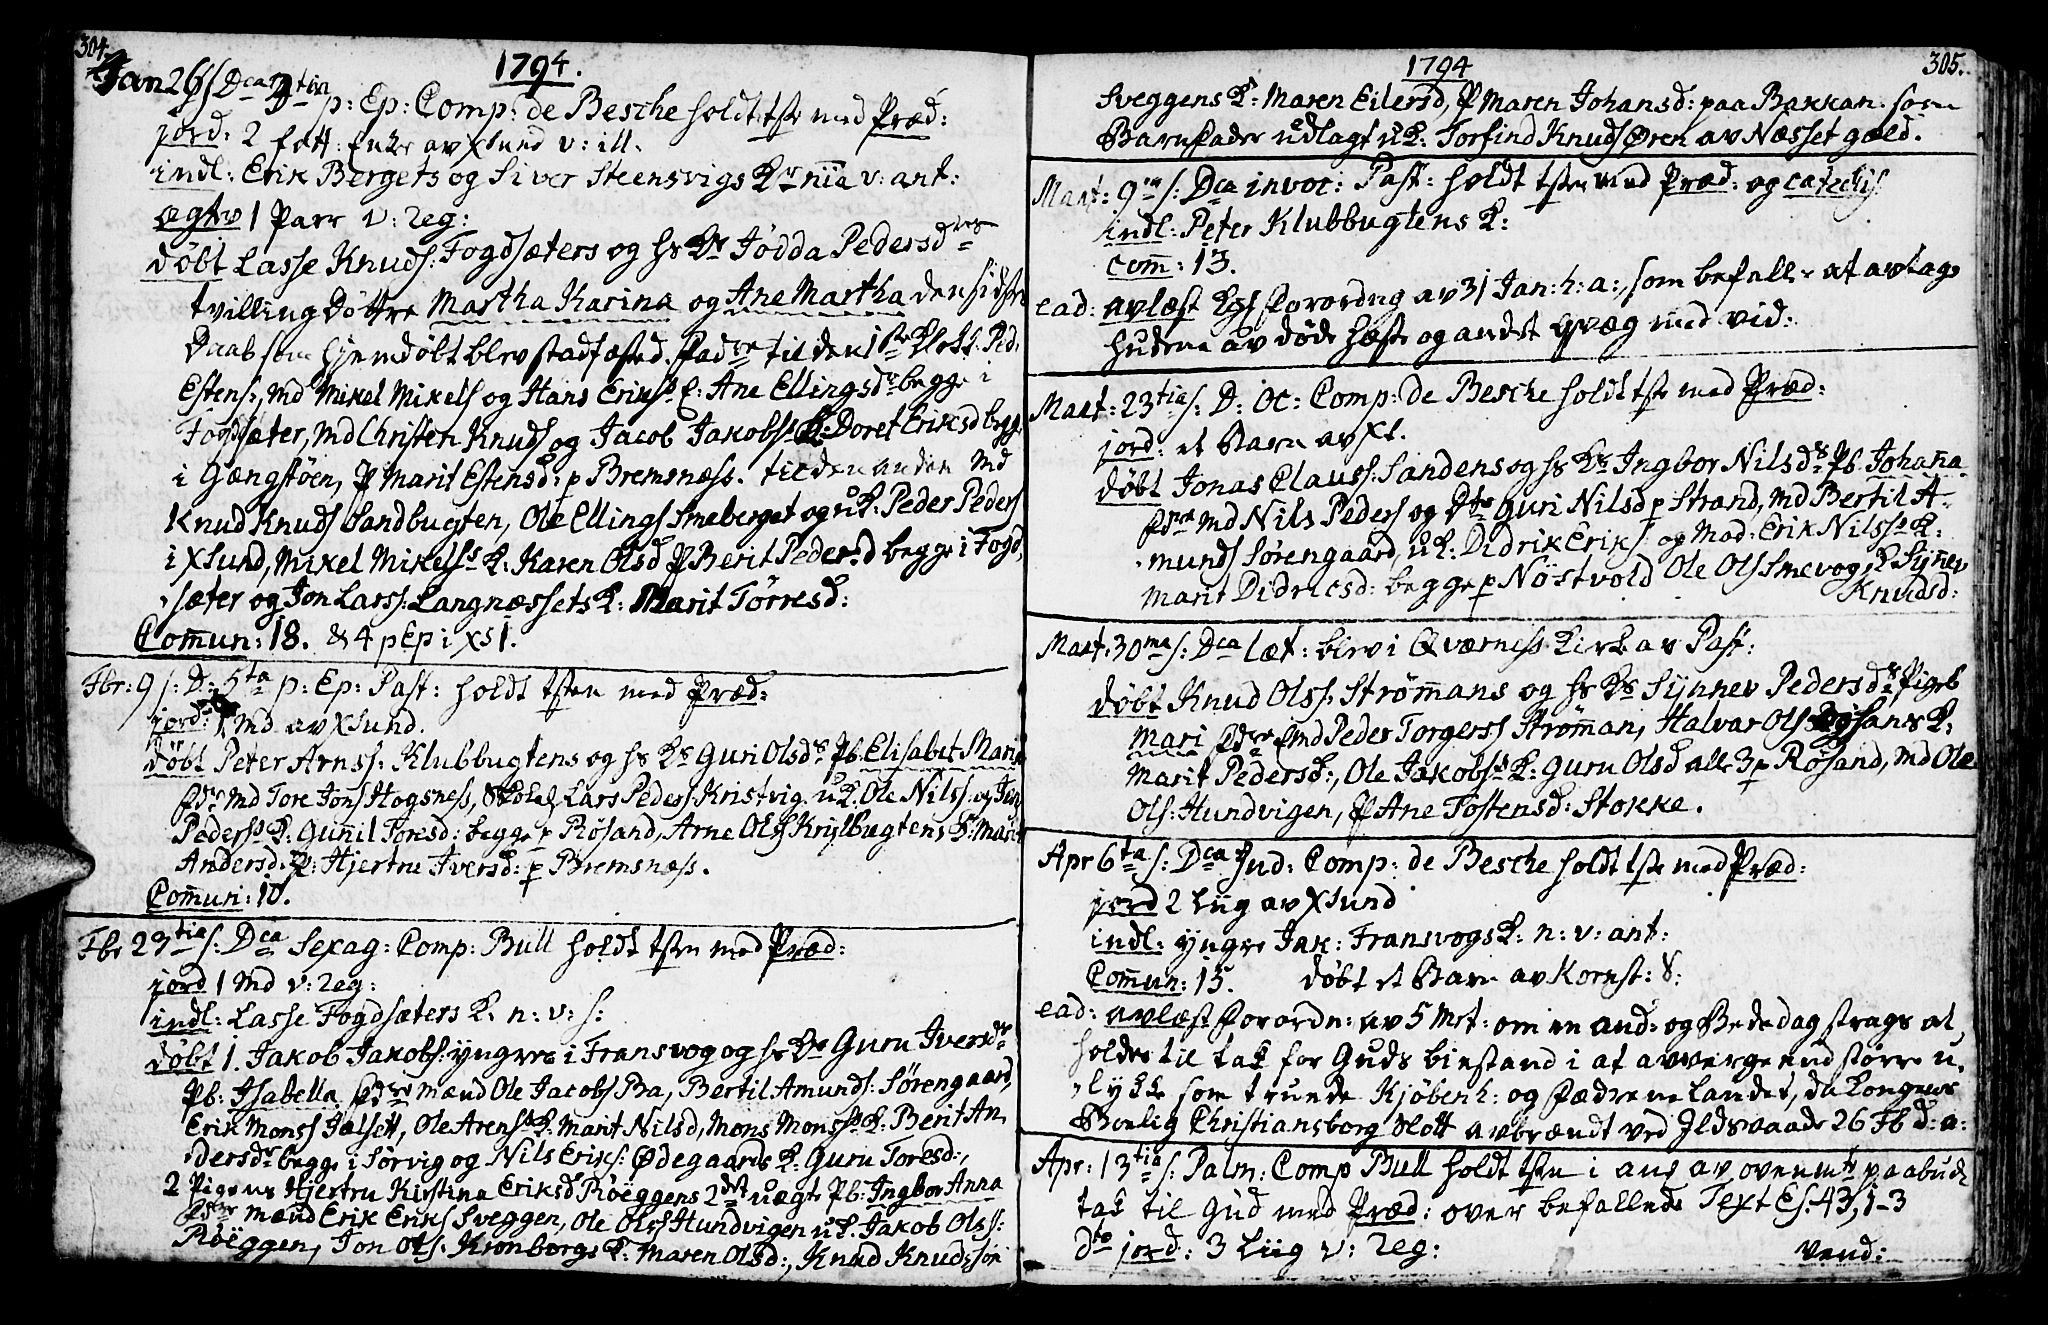 304
1794.
Jan 26 s: Dca 3tia p: Ep: Comp: de Besche holdt tste med Præd:
jord: 2 fatt: Enker av Xsund v: ill.
indl: Erik Bergets og Siver Steensvigs Kr nna v: ant:
ægtev 1 Parr v: 2eg:
døbt Lasse Knuds: Fogdsæters og hs Ks Jødda Pedersdrs
tvilling Døttre Martha Karina og Ane Martha den sidstes
Daab som hjemdøbt blev stadfæsted. Fadre til den 1ste Ped:
Estens:, Md Mikel Mikels og Hans Eriks: K: Ane Ellingsdr begge i
Fogdsæter, Md Christen Knuds og Jacob Jakobs K: Doret Eriksd begge
i Gængstøen, P Marit Estensd: p Bremsnæss. til den anden Md
Knud Knuds Sandbugten, Ole Ellings Smeberget og uK: Peder Peders
i Xsund, Mikel Mikelss K: Karen Olsd P Berit Pedersd begge i Fogd,
sæter og Jon Larss: Langnæssets K: Marit Tørresd:
Comun: 18. & 4 p Ep: i xs 1.
Fbr: 9 s: D: 5ta p: Ep: Past: holdt tsten med Præd:
jord: 1 Md av Xsund.
døbt Peter Arnss: Klubbugtens og hs Ks Guri Olsdr Pb. Elisabet Maria
Fdr Md Tore Jons Hogsness, Lars Peders Kristvig uK. Ole Nilss: og
Peders K: Gunil Toresd: begge p Røsand, Arne Ols Krislbugtens K: Marit
Andersd. P: Hjertru Iversd: p Bremsnæss.
Comun: 10.
Fbr 23tia s: Dca Sexag: Comp: Bull holdt tsten med Præd:
jord 1 Md v: 2eg:
indl: Lasse Fogdsæters K: n: v: s:
døbt 1. Jakob Jakobs: yngres i Fransvog og hs Ks Guru Iversdr
Pb: Isabella Fdre mænd Ole Jacobs Ba, Bertil Amunds: Sørengaard,
Erik Monss Jalsett, Ole Arens K: Marit Nilsd, Mons Monss K: Berit An
dersdr begge i Sørvig og Nils Eriks: Ødegaards K: Guru Toresd:,
2 Pigens Hjertru Kirstina Eriksd Røeggens 2det uægte Pb: Ingbor Anna
Fdre mænd Erik Eriks Sveggen, Ole Olss Hundvigen uK. Jakob Olss:
Røeggen, Jon Ols: Kronborgs K: Maren Olsd:, Knud Knudssøn
1794
305.
Sveggens K: Maren Eilersd, P Maren Johansd: paa Bakkan. som
Barnfader udlagt uK: Torfind Knuds Øren av Næsset gæld.
Mart: 9na s: Dca invoc: Past: holdt tsten med Præd: og catechis
indl: Peter Klubbugtens K:
com: 13.
ead: avlæst Kgl Forordng av 31 Jan: h: a:, som befaller at avtage
hudene av døde hæste og andet qvæg med vid:
Mart: 23tia s: D: Oc: Comp: de Besche holdt tste med Præd:
jord: et Barn av Xt.
døbt Jonas Clauss: Sandens og hs Ks Ingbor Nilsdrs Pb. Johana
Fdre Md Nils Peders og Dto Guri Nilsd p Strand, Md Bertil A-
munds Sørengaard, uK: Didrik Eriks: og Mad: Erik Nilss K:
Marit Didricsd: begge p Nøstvold Ole Ols Smevog, K Synnev
Knudsd:
Mart. 30ma s: Dca læt: blev i Qværness Kirke av Past:
døbt Knud Olss: Strømans og hs Ks Synnev Pedersdrs Pigeb
Mari Fdre Md Peder Torgerss Strøman, Halvar Ols K:
Marit Pedersd:, Ole Jakobss K: Guru Olsd alle 3 p Røsand, Md Ole
Ols: Hundvigen, P Ane Tostensd: Stokke.
Apr 6ta s: Dca Jud: Comp: de Besche holdt tste med Præd:
jord 2 Liig av Xsund
indl: yngre Jak: Fransvogs K: n: v: ant:
Comun: 15. døbt et Barn av Kornst: S:
ead: avlæst Forordn: av 5 Mrt: om en and: og Bededag strags at
holdes til tak for Guds biestand i at avværge end større u,
lykke som truede Kjøbenh: og Fædrenelandet, da Kongens
Boelig Christiansborg Slott avbrændt ved Ildsvaade 26 Fb d: a:
Apr: 13tia s: Palm: Comp Bull holdt tsten i anl av ovenmte paabud:
tak til Gud med Præd: over befallede Text Es: 43, 1-3
Dto jord: 3 Liig v: 2eg: vend: